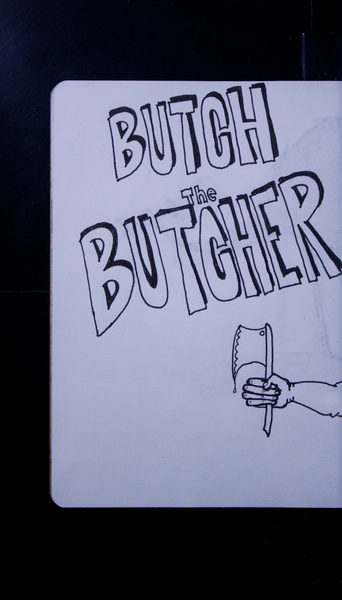 BUTCH
The
BUTCHER